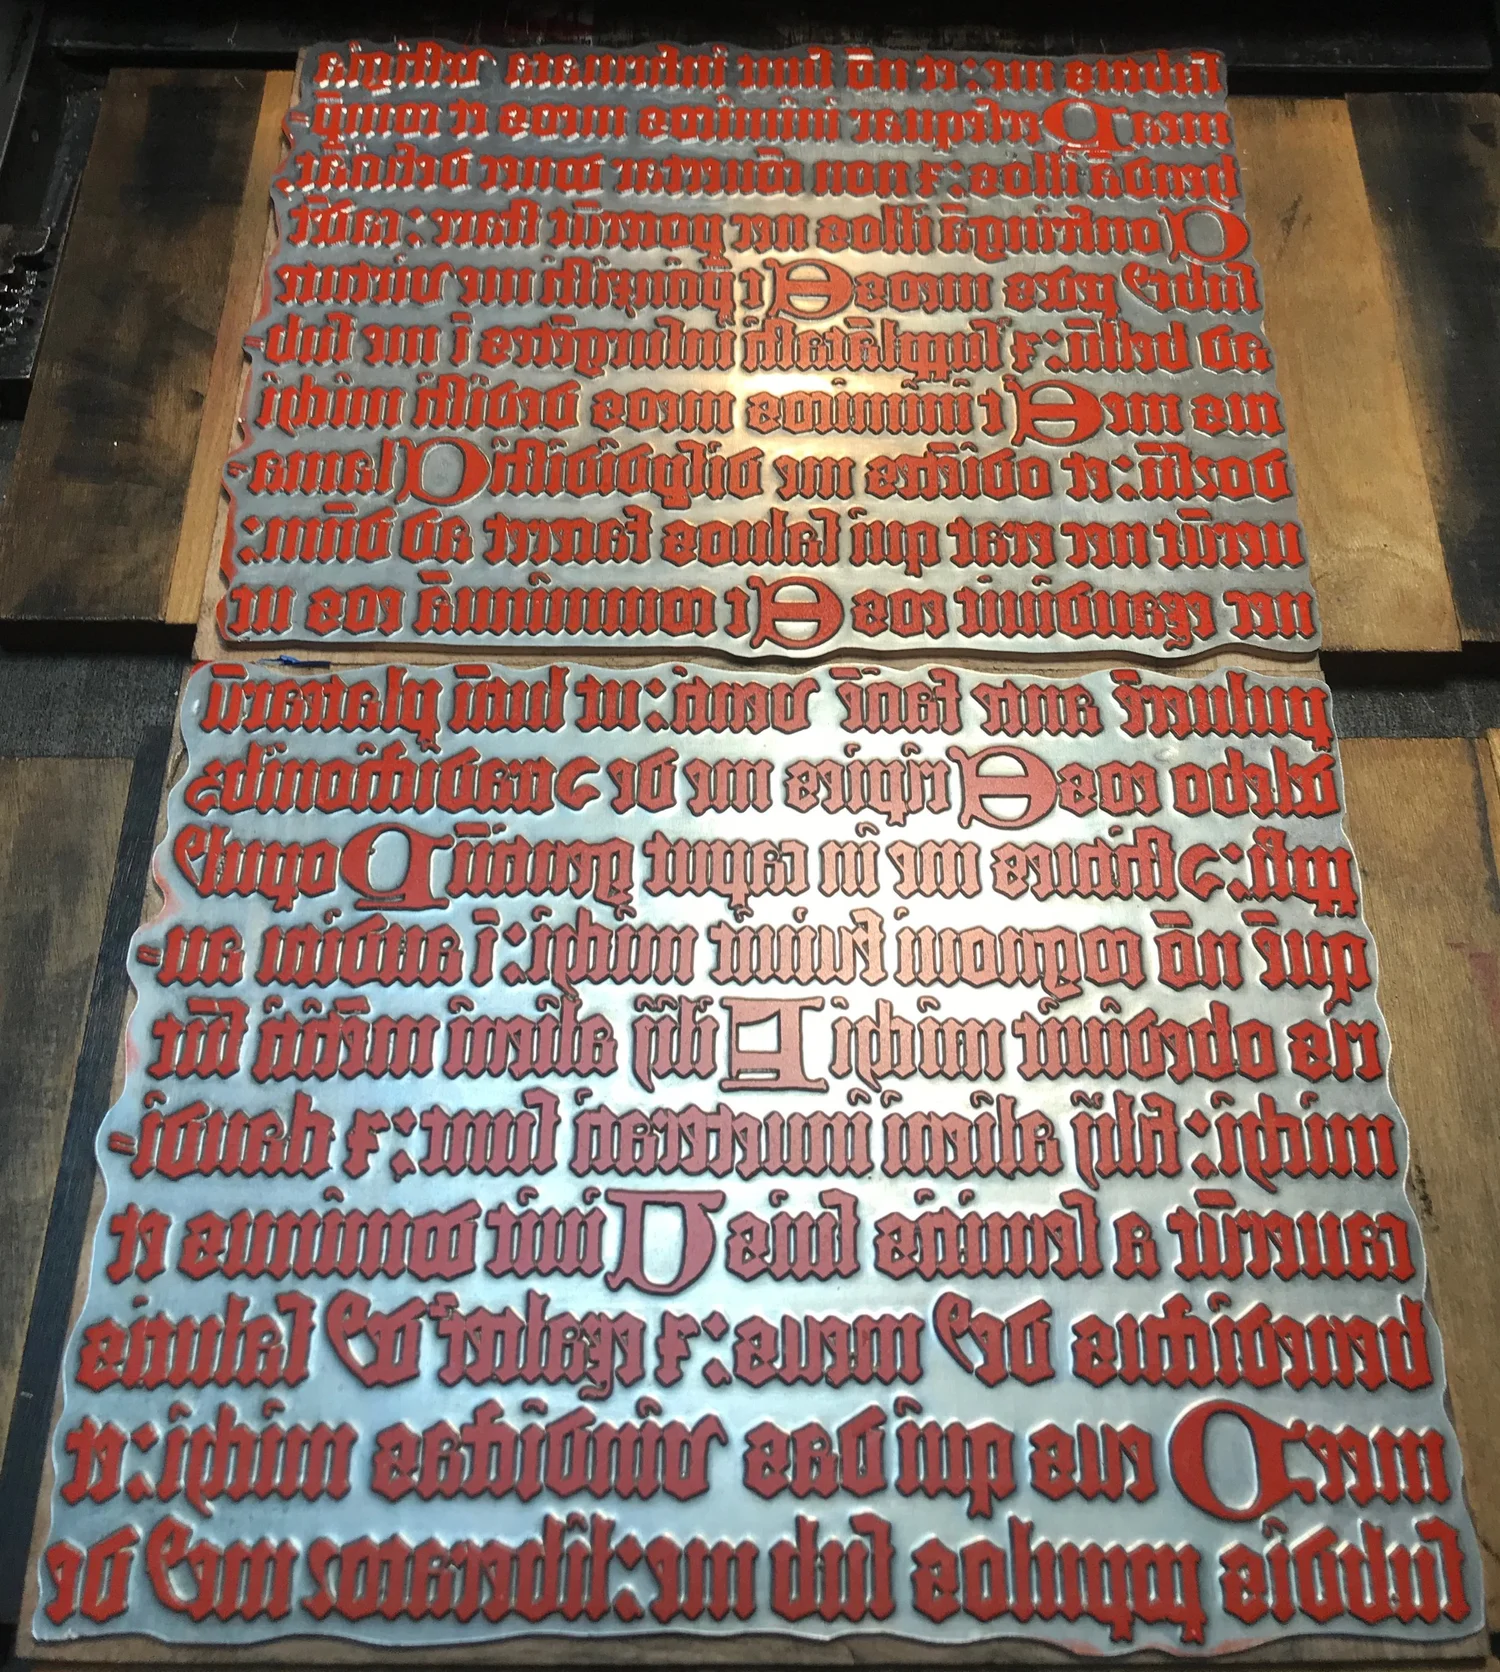 subtus me: et nō sunt infirmata vestigia
mea Persequar inimicos meos et comp̄=
hendā illos: ⁊ non cōvertar donec deficiāt.
Confringā illos nec poterūt stare: cadēt
subtꝰ pedes meos Et p̄cinxisti me virtute
ad bellū: ⁊ supplātasti insurgētes ī me sub=
tus me Et inimicos meos dedisti michi
dorsū: et odiētes me disperdidisti Clama=
uerūt nec erat qui saluos faceret ad dn̄um:
nec exaudiuit eos Et comminuā eos ut
puluerē ante faciē venti: ut lutū platearū
delebo eos Eripies me de ɔtradictionibꝰ
ppl̄i: ɔstitues me in caput gentiū Populꝰ
quē nō cognoui seruiuit michi: ī auditu au=
ris obediuit michi Filij alieni mētiti sūt
michi: filij alieni inueterati sunt: ⁊ claudi=
cauerūt a semitis suis Viuit dominus et
benedictus deꝰ meus: ⁊ exaltet͛ dꝰ salutis
mee Deus qui das vindictas michi: et
subdis populos sub me: liberator meꝰ de